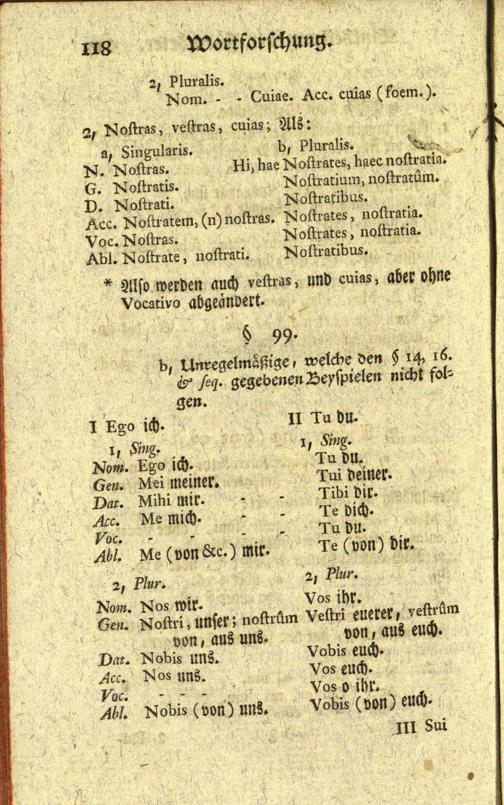 118 Wortforschung.
2, Pluralis.
Nom. - - Cuiae. Acc. cuias (foem.).
2, Nostras, vestras, cuias; Als:
a, Singularis. b, Pluralis.
N. Nostras. Hi, hae Nostrates, haec nostratia.
G. Nostratis. Nostratium, nostratûm.
D. Nostrati. Nostratibus.
Acc. Nostratem, (n) nostras. Nostrates, nostratia.
Voc. Nostras. Nostrates, nostratia.
Abl. Nostrate, nostrati. Nostratibus.
* Also werden auch vestras, und cuias, aber ohne
Vocativo abgeändert.
§ 99.
b, Unregelmäßige, welche den § 14, 16.
& seq. gegebenen Beyspielen nicht fol-
gen.
I Ego ich. II Tu du.
1, Sing. 1, Sing.
Nom. Ego ich. Tu du.
Gen. Mei meiner. Tui deiner.
Dat. Mihi mir. - - Tibi dir.
Acc. Me mich. - - Te dich.
Voc. - - - - Tu du.
Abl. Me (von &c.) mir. Te (von) dir.
2, Plur. 2, Plur.
Nom. Nos wir. Vos ihr.
Gen. Nostri, unser; nostrûm Vestri euerer, vestrûm
von, aus uns. von, aus euch.
Dat. Nobis uns. Vobis euch.
Acc. Nos uns. Vos euch.
Voc. - - - Vos o ihr.
Abl. Nobis (von) uns. Vobis (von) euch.
III Sui